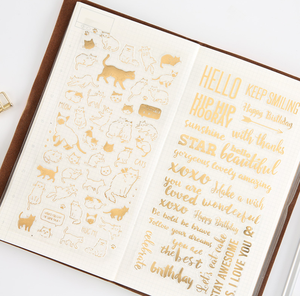 HELLO
KEEP SMILING
HIP HIP
HOORAY
Happy Birthday
sunshine
with thanks
STAR
hello
beautiful
gorgeous
lovely
amazing
xoxo
Make a wish
you are
loved
wonderful
xoxo
Happy Birthday
Follow your dreams
you are
the best
celebrate
birthday
STAY AWESOME
I LOVE YOU
&